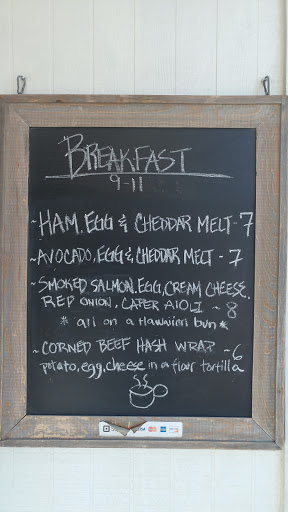 BREAKFAST
9-11
~HAM, EGG & CHEDDAR MELT - 7
~AVOCADO, EGG & CHEDDAR MELT - 7
~SMOKED SALMON, EGG, CREAM CHEESE,
RED ONION, CAPER AIOLI ~ 8
* all on a Hawaiian bun *
~CORNED BEEF HASH WRAP ~ 6
potato, egg, cheese in a flour tortilla